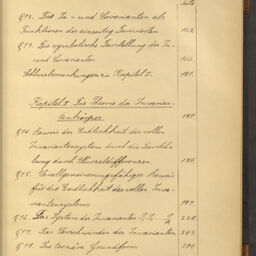 Seite
§ 12. Die In- und Covarianten als
Funktionen der einseitig Derivierten 152.
§ 13. Die symbolische Darstellung der In-
und Covarianten 166.
Schlussbemerkungen z. Kapitel I. 181.
Kapitel II. Die Theorie der Invarian-
tenkörper 184.
§ 14. Beweis der Endlichkeit des vollen
Invariantensystems durch die Darstel-
lung durch Wurzeldifferenzen 184.
§ 15. Verallgemeinerungsfähiger Beweis
für die Endlichkeit des vollen Inva-
riantensystems 197.
§ 16. Das System der Invarianten 228.
§ 17. Das Verschwinden der Invarianten 243.
§ 18. Die ternäre Grundform